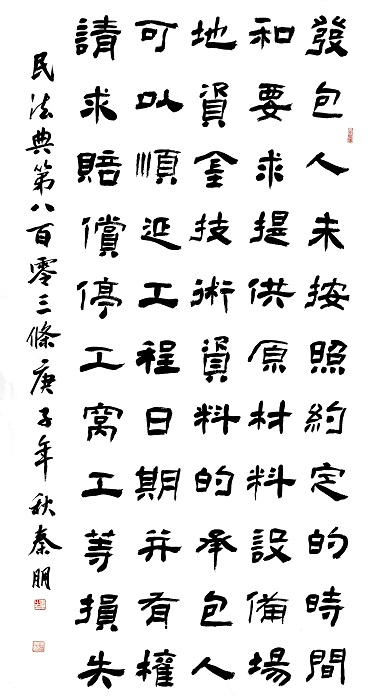 發包人未按照約定的時間
和要求提供原材料設備場
地資金技術資料的承包人
可以順延工程日期并有權
請求賠償停工窩工等損失
民法典第八百零三條庚子年秋秦朋